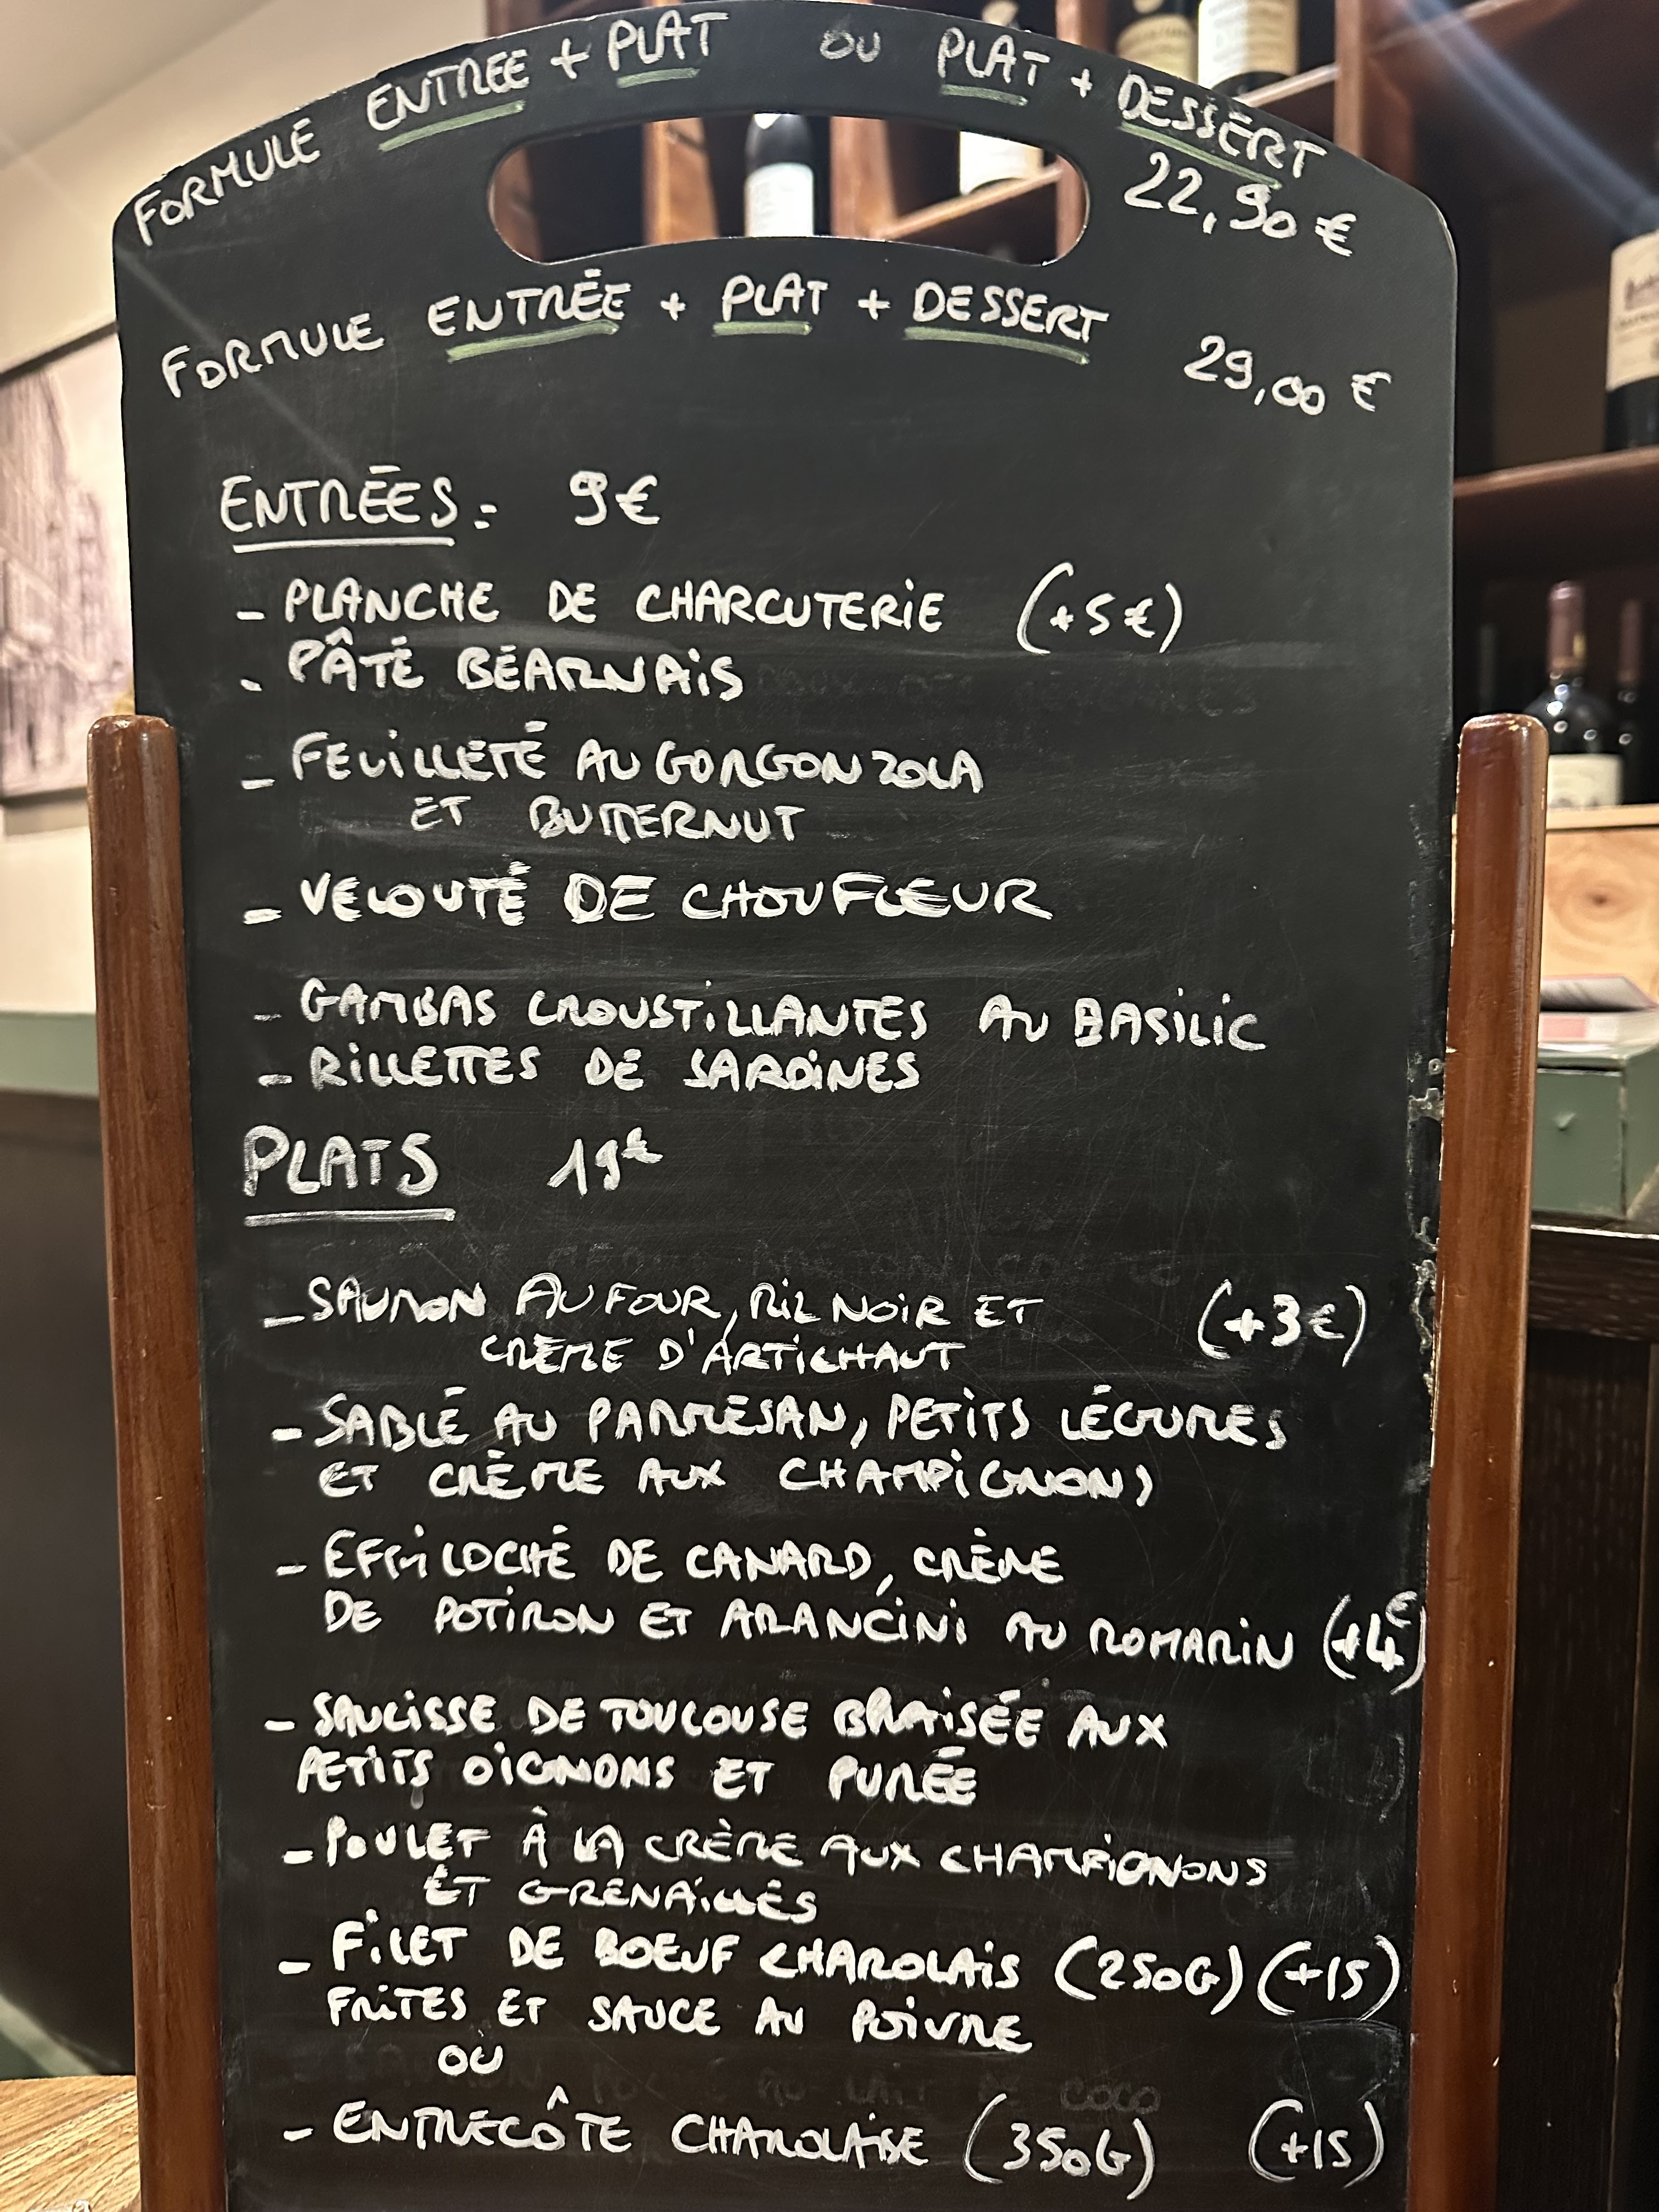 FORMULE ENTREE + PLAT OU PLAT + DESSERT
22,90 €
FORMULE ENTRÉE + PLAT + DESSERT 29,00 €
ENTRÉES: 9€
- PLANCHE DE CHARCUTERIE (+5€)
- PÂTÉ BÉARNAIS
- FEUILLETÉ AU GORGONZOLA
ET BUTTERNUT
- VELOUTÉ DE CHOUFLEUR
- GAMBAS CROUSTILLANTES AU BASILIC
- RILLETTES DE SARDINES
PLATS 19€
- SAUMON AU FOUR, RIZ NOIR ET (+3€)
CRÈME D'ARTICHAUT
- SABLÉ AU PARMESAN, PETITS LÉGUMES
ET CRÈME AUX CHAMPIGNONS
- EFFILOCHÉ DE CANARD, CRÈME
DE POTIRON ET ARANCINI AU ROMARIN (+4€)
- SAUCISSE DE TOULOUSE BRAISÉE AUX
PETITS OIGNONS ET PURÉE
- POULET À LA CRÈME AUX CHAMPIGNONS
ET GRENAILLES
- FILET DE BOEUF CHAROLAIS (250G) (+15)
FRITES ET SAUCE AU POIVRE
OU
- ENTRECÔTE CHAROLAISE (350G) (+15)